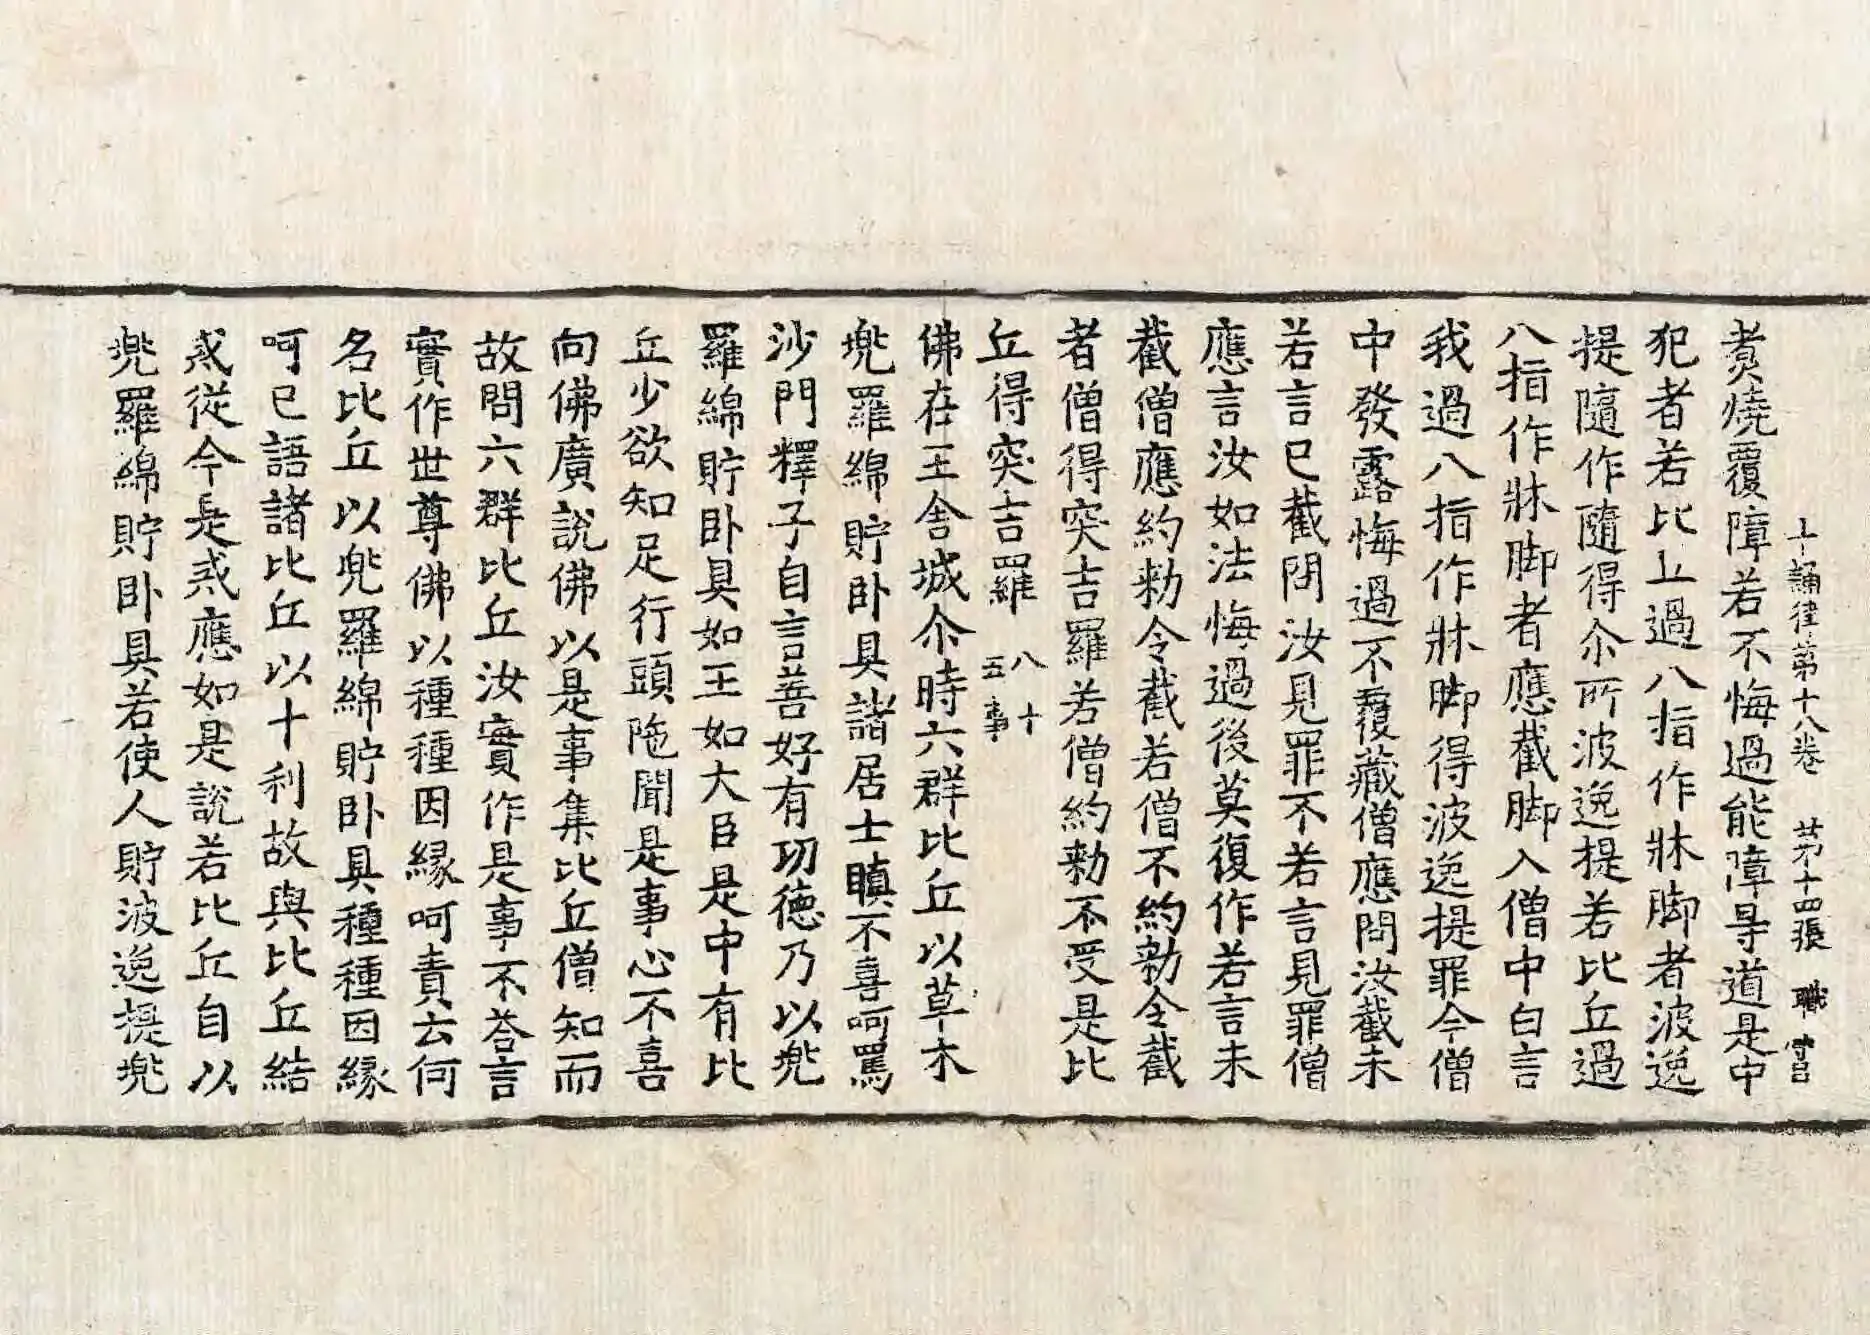 十誦律第十八卷 苐十四張 職
煑燒覆障若不悔過能障㝵道是中
犯者若比丘過八指作牀脚者波逸
提隨作隨得尒所波逸提若比丘過
八指作牀脚者應截脚入僧中白言
我過八指作牀脚得波逸提罪今僧
中發露悔過不覆藏僧應問汝截未
若言已截問汝見罪不若言見罪僧
應言汝如法悔過後莫復作若言未
截僧應約勑令截若僧不約勑令截
者僧得突吉羅若僧約勑不受是比
丘得突吉羅 八十五事
佛在王舍城尒時六群比丘以草木
兠羅綿貯卧具諸居士瞋不喜呵罵
沙門釋子自言善好有功德乃以兠
羅綿貯卧具如王如大臣是中有比
丘少欲知足行頭陁聞是事心不喜
向佛廣說佛以是事集比丘僧知而
故問六群比丘汝實作是事不荅言
實作世尊佛以種種因緣呵責云何
名比丘以兠羅綿貯卧具種種因緣
呵已語諸比丘以十利故與比丘結
戒從今是戒應如是說若比丘自以
兠羅綿貯卧具若使人貯波逸提兠